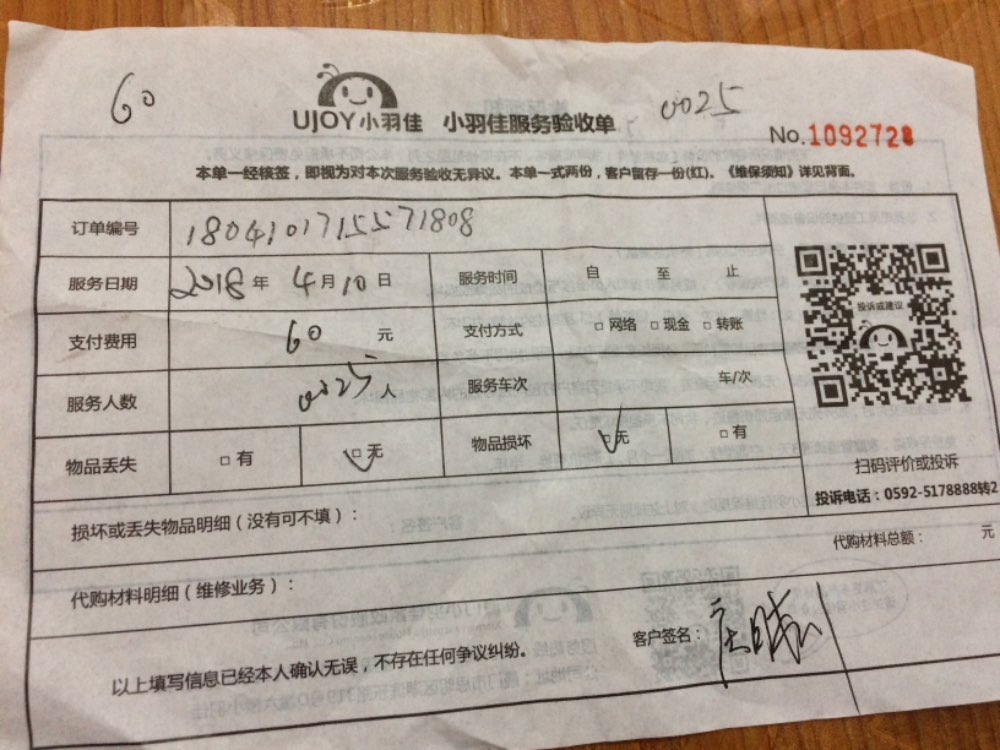 60
0025
UJOY小羽佳 小羽佳服务验收单
No.1092728
本单一经核签，即视为对本次服务验收无异议。本单一式两份，客户留存一份(红)。《维保须知》详见背面。
订单编号 1804101715571808
服务日期 2018年 4月10日 服务时间 自 至 止
支付费用 60 元 支付方式 □网络 □现金 □转账
服务人数 0025人 服务车次 车/次
物品丢失 □有 ✓□无 物品损坏 ✓□无 □有
投诉或建议
扫码评价或投诉
投诉电话：0592-5178888转2
损坏或丢失物品明细（没有可不填）：
代购材料总额： 元
代购材料明细（维修业务）：
以上填写信息已经本人确认无误，不存在任何争议纠纷。
客户签名：